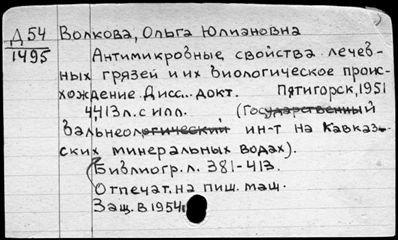 Д 54 Волкова, Ольга Юлиановна
1495 Антимикробные свойства лечеб-
ных грязей и их биологическое проис-
хождение. Дисс.. докт. Пятигорск, 1951
4,413 л. с илл. (Государственный
бальнеологический ин-т на Кавказ-
ских минеральных водах).
Библиогр. л. 381-413.
Отпечат. на пиш. маш.
Защ. в 1954